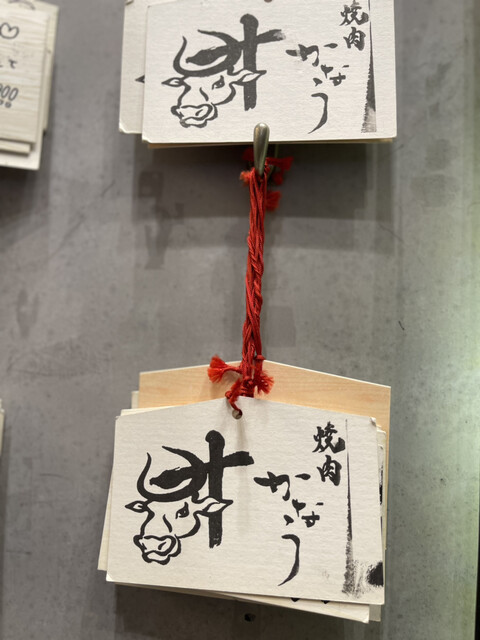 焼肉
かなう
叶
焼肉
かなう
叶